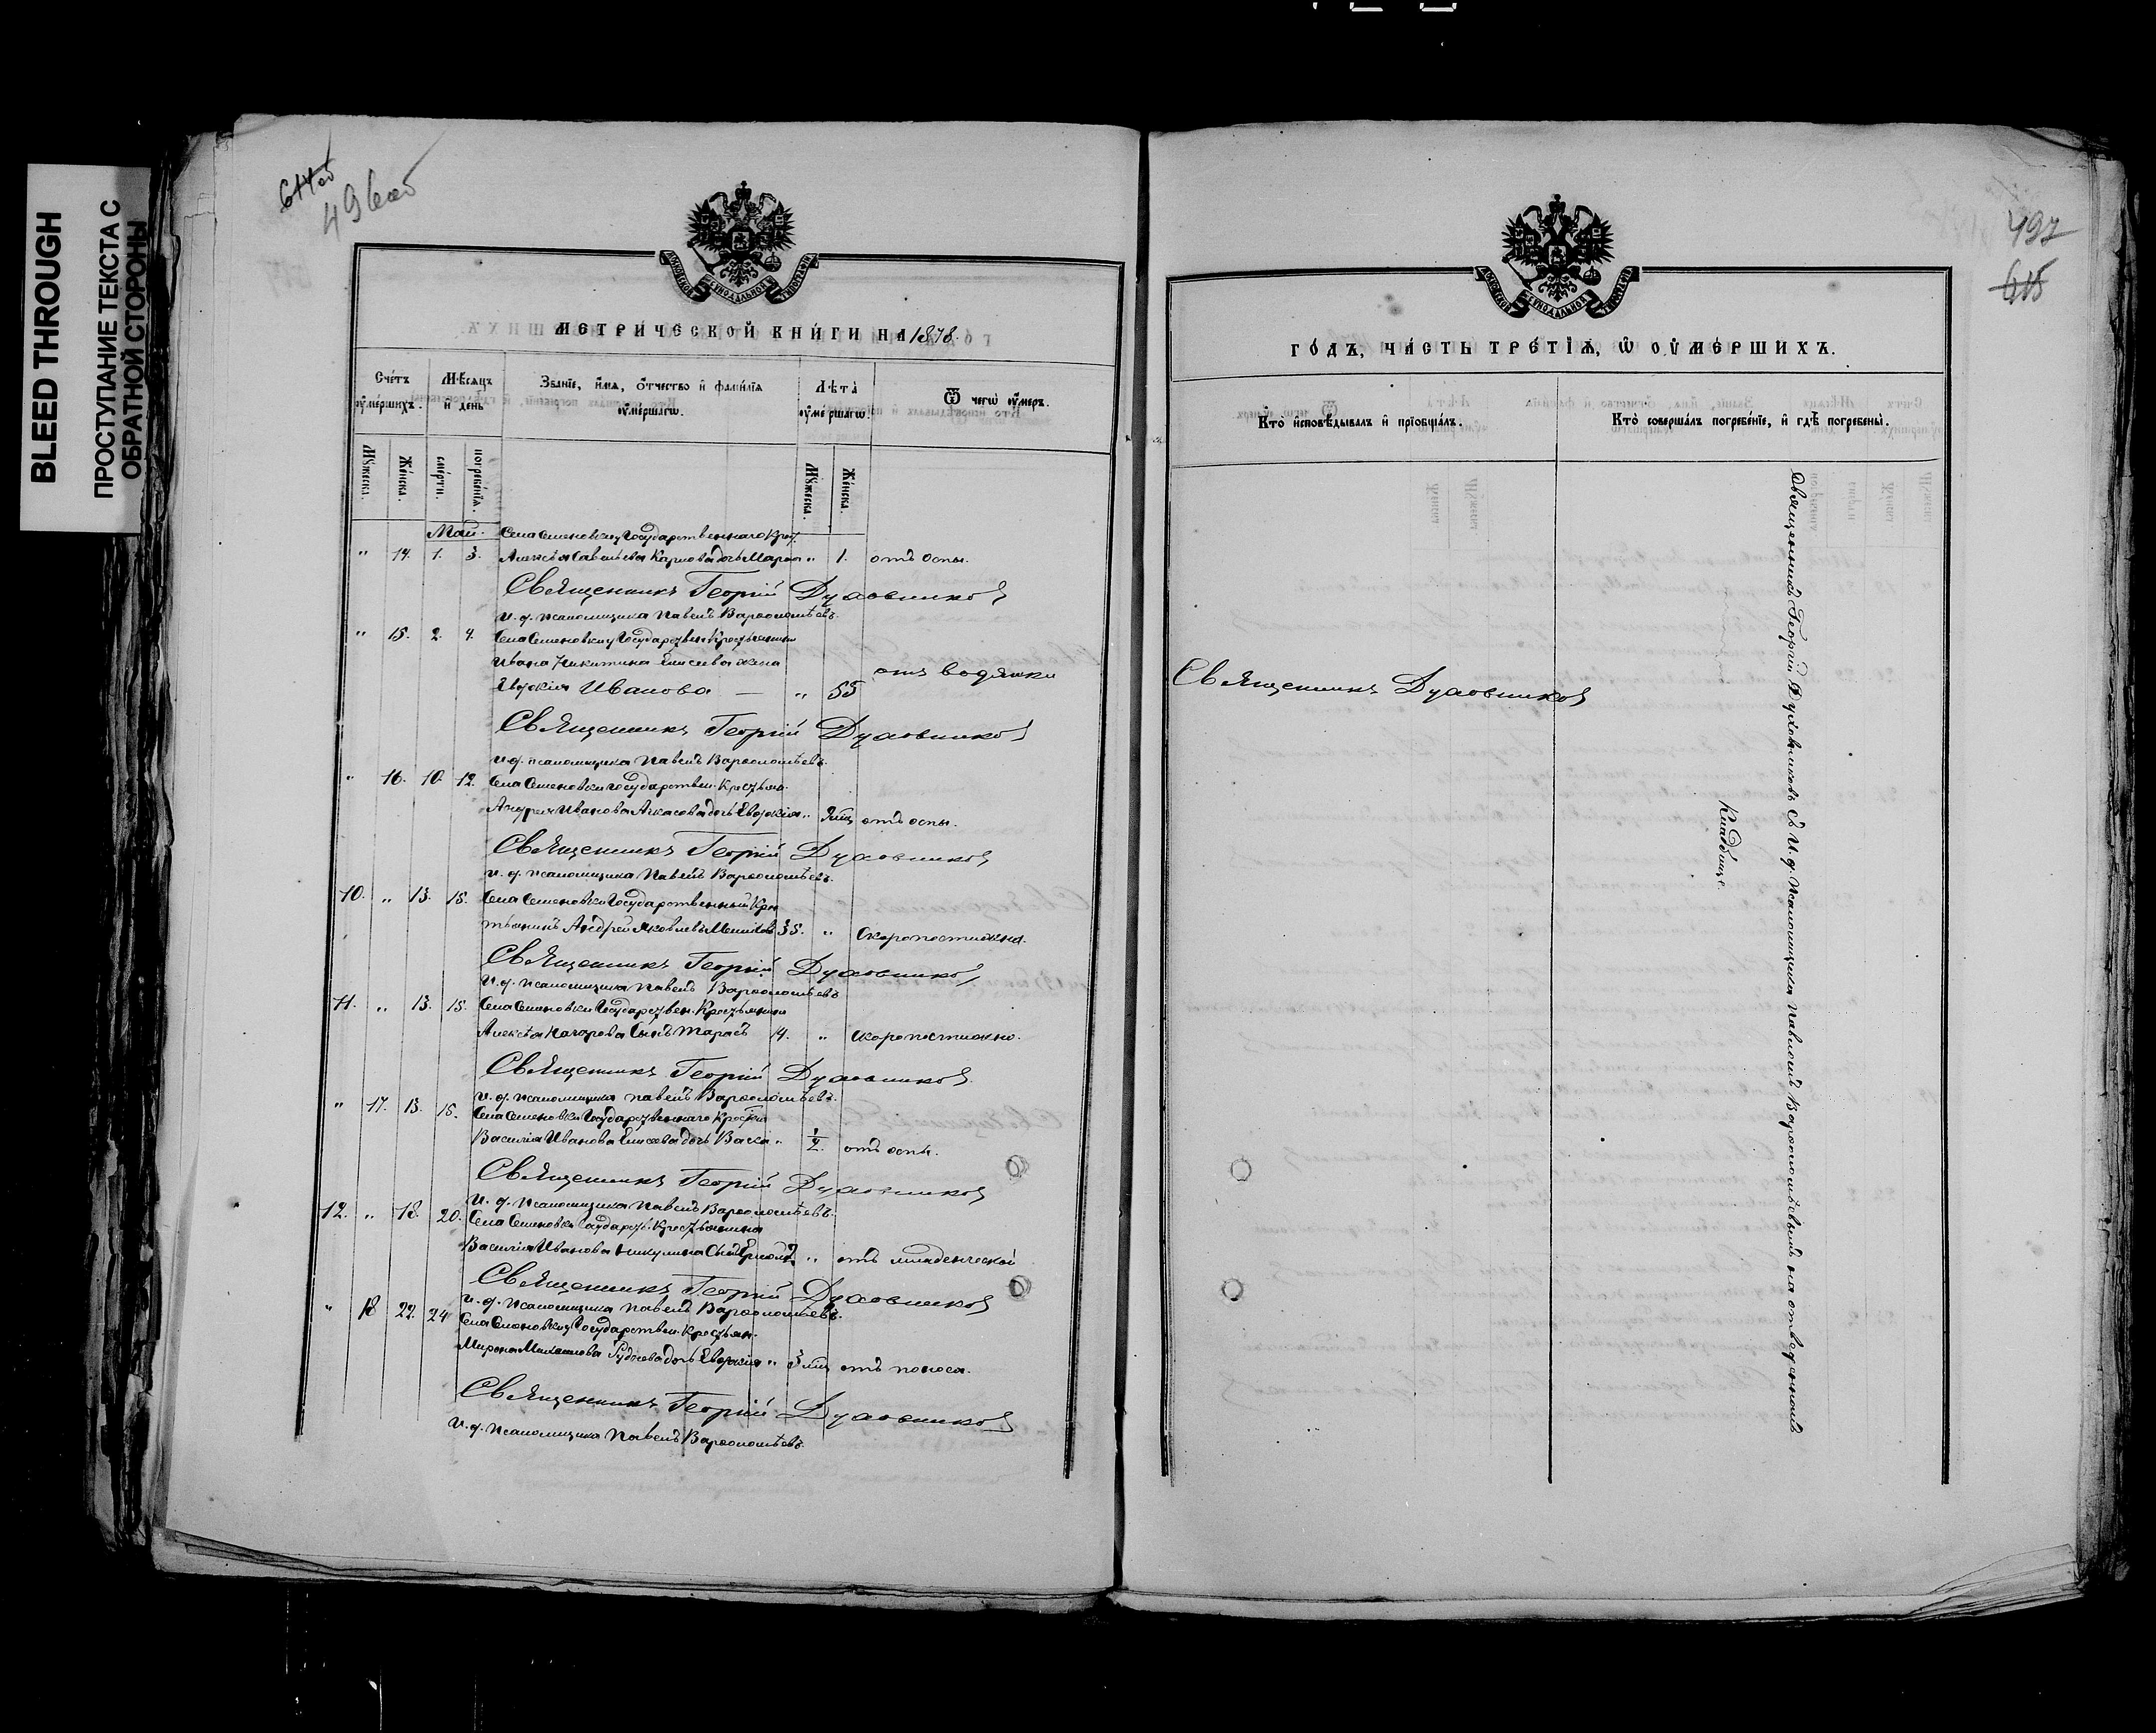 BLEED THROUGH
ПРОСТУПАНИЕ ТЕКСТА С
ОБРАТНОЙ СТОРОНЫ
614 об
496 об
МОСКОВСКОЙ СѴНОДАЛЬНОЙ ТИПОГРАФІИ
МЕТРИЧЕСКОЙ КНИ́ГИ НА 1878.
Сче́тъ ᲂу҆ме́ршихъ.
Мѣ́сяцъ и҆ день
Зва́нїе, и҆́мѧ, ѻ҆́тчество и҆ фами́лїѧ ᲂу҆ме́ршагѡ.
Лѣ́та ᲂу҆ме́ршагѡ.
Ѿ чегѡ̀ ᲂу҆́меръ.
Мꙋ́жеска.
Же́нска.
сме́рти.
погребе́нїѧ.
Мꙋ́жеска.
Же́нска.
Май.
Села Семеновки Государственнаго Крес.
" 14. 1. 3. Алексѣя Савельева Карпова дочь Марѳа " 1. отъ оспы.
Священникъ Георгій Духовниковъ
И. д. псаломщика Павелъ Варѳоломѣевъ.
" 15. 2. 4. Села Семеновки Государствен. Крестьянина
Ивана Никитина Елисеева жена
Евдокія Иванова — " 55 отъ водянки
Священникъ Георгій Духовниковъ
И. д. псаломщика Павелъ Варѳоломѣевъ.
" 16. 10. 12. Села Семеновки государствен. Крестьян.
Андрея Иванова дочь Евдокія " отъ оспы.
Священникъ Георгій Духовниковъ
И. д. псаломщика Павелъ Варѳоломѣевъ.
10. " 13. 15. Села Семеновки Государственный Крес
тьянинъ Андрей Яковлевъ 35. " Скоропостижно.
Священникъ Георгій Духовниковъ
И. д. псаломщика Павелъ Варѳоломѣевъ
11. " 13. 15. Села Семеновки Государствен. Крестьянина
Алексѣя Сынъ Тарасъ 14. " скоропостижно.
Священникъ Георгій Духовниковъ
И. д. псаломщика Павелъ Варѳоломѣевъ.
" 17. 13. 15. Села Семеновки Государственнаго
Василія Иванова Елисеева дочь Васса " 1/2. отъ оспы.
Священникъ Георгій Духовниковъ
И. д. псаломщика Павелъ Варѳоломѣевъ.
12. " 18. 20. Села Семеновки Государст. Крестьянина
Василія Иванова Никулина Сынъ " отъ младенческой
Священникъ Георгій Духовниковъ
И. д. псаломщика Павелъ Варѳоломѣевъ.
" 18 22. 24 Села Семеновки Государствен. Крестьян.
Мирона Михаилова дочь Евдокія " отъ поноса.
Священникъ Георгій Духовниковъ
И. д. псаломщика Павелъ Варѳоломѣевъ.
497
615
МОСКОВСКОЙ СѴНОДАЛЬНОЙ ТИПОГРАФІИ
ГО́ДЪ, ЧА́СТЬ ТРЕ́ТЇѦ, Ѡ҆ ᲂУ҆МЕ́РШИХЪ.
Кто̀ и҆сповѣ́дывалъ и҆ прїѡбща́лъ.
Кто̀ соверша́лъ погребе́нїе, и҆ гдѣ̀ погребены̀.
Священникъ Духовниковъ
Священникъ Георгій Духовниковъ съ И. д. псаломщика Павломъ Варѳоломѣевымъ на отведенномъ
Кладбищѣ.